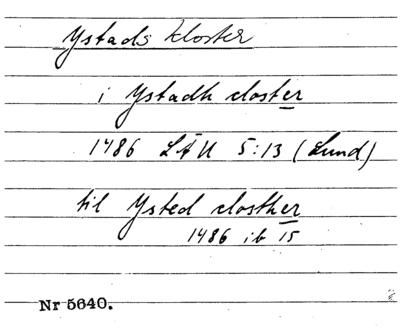 Ystads kloster
i Ystadh closter
1486 LÄU 5:13 (Lund)
til Ysted closther
1486 ib 15
Nr 5640.